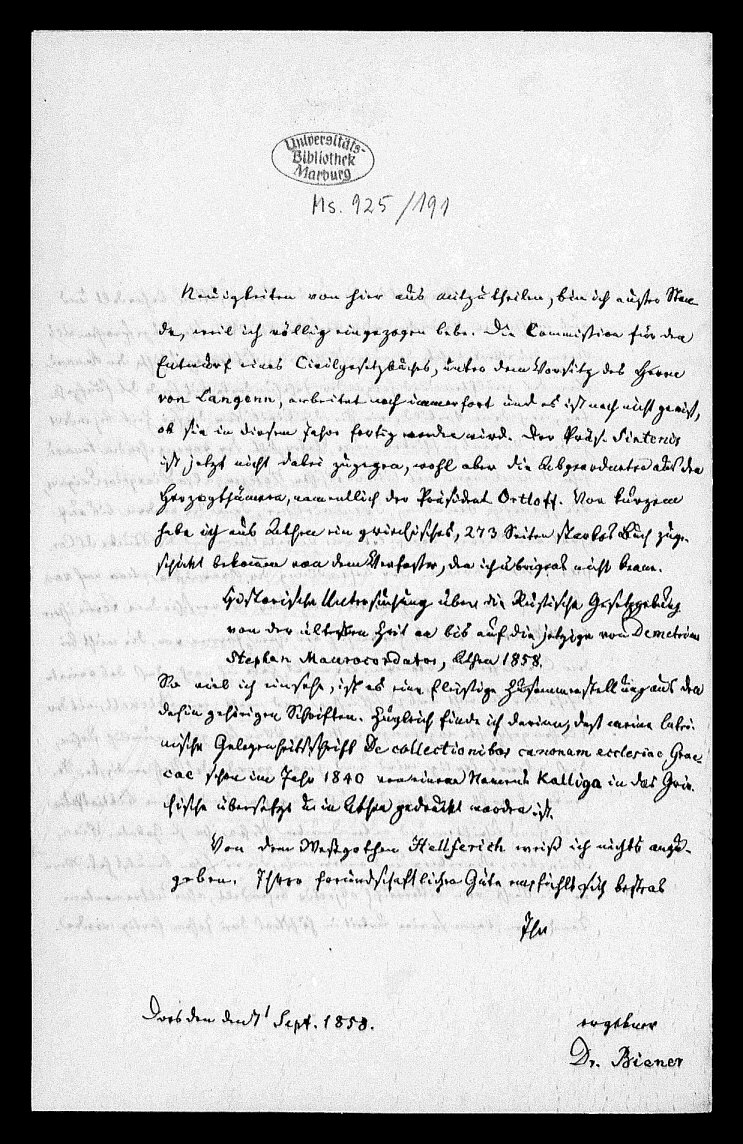 Universitäts-
Bibliothek
Marburg
Ms. 925/191
Neuigkeiten von hier aus mitzutheilen, bin ich außer Stan-
de, weil ich völlig eingezogen lebe. Die Commission für den
Entwurf eines Civilgesetzbuches, unter dem Vorsitz des Herrn
von Langenn, arbeitet noch immerfort und es ist noch nicht gewiß,
ob sie in diesem Jahre fertig werden wird. Der Präs. Sintenis
ist jetzt nicht dabei zugegen, wohl aber die Abgeordneten aus den
Herzogthümern, namentlich der Präsident Ortloff. Von kurzem
habe ich aus Athen ein griechisches, 273 Seiten starkes Buch zuge-
schickt bekommen von dem Verfasser, den ich übrigens nicht kenne.
Historische Untersuchung über die Russische Gesetzgebung
von der ältesten Zeit an bis auf die jetzige von Demetrius
Stephan Maurocordatos, Athen 1858.
So viel ich einsehe, ist es eine fleißige Zusammenstellung aus den
dahin gehörigen Schriften. Zugleich finde ich darinn, daß meine latei-
nische Gelegenheitsschrift De collectionibus canonum ecclesiae Grae-
cae schon im Jahr 1840 von einem Namens Kalliga in das Grie-
chische übersetzt & in Athen gedruckt worden ist.
Von dem Westgothen Helfferich weiß ich nichts anzu-
geben. Ihrer freundschaftlichen Güte empfiehlt sich bestens
Ihr
Dresden den 1 Sept. 1858.
ergebner
Dr. Biener